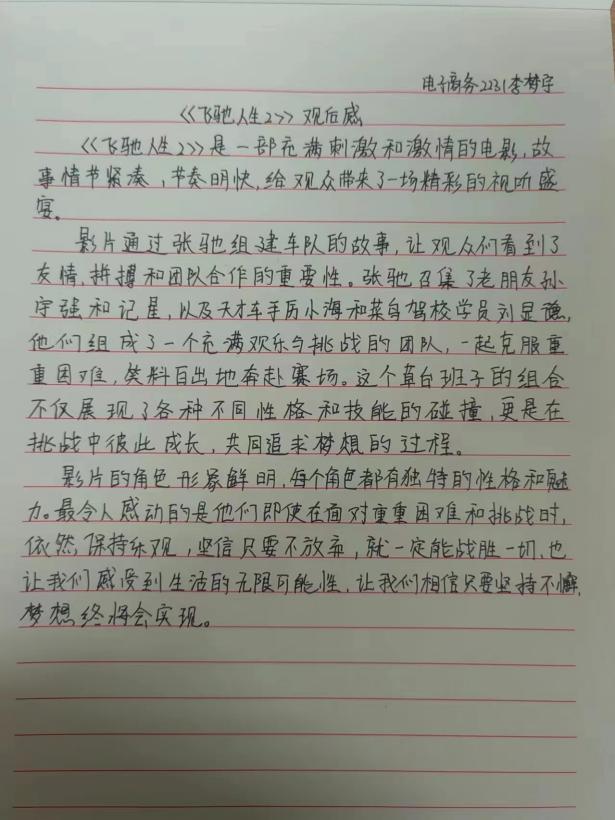 电子商务2231李梦宇
《《飞驰人生2》》观后感
《《飞驰人生2》》是一部充满刺激和激情的电影,故
事情节紧凑,节奏明快,给观众带来了一场精彩的视听盛
宴。
影片通过张驰组建车队的故事,让观众们看到了
友情,拼搏和团队合作的重要性。张驰召集了老朋友孙
宇强和记星,以及天才车手厉小海和菜鸟驾校学员刘显德,
他们组成了一个充满欢乐与挑战的团队,一起克服重
重困难,笑料百出地奔赴赛场。这个草台班子的组合
不仅展现了各种不同性格和技能的碰撞,更是在
挑战中彼此成长,共同追求梦想的过程。
影片的角色形象鲜明,每个角色都有独特的性格和魅
力。最令人感动的是他们即使在面对重重困难和挑战时,
依然保持乐观,坚信只要不放弃,就一定能战胜一切,也
让我们感受到生活的无限可能性,让我们相信只要坚持不懈,
梦想终将会实现。